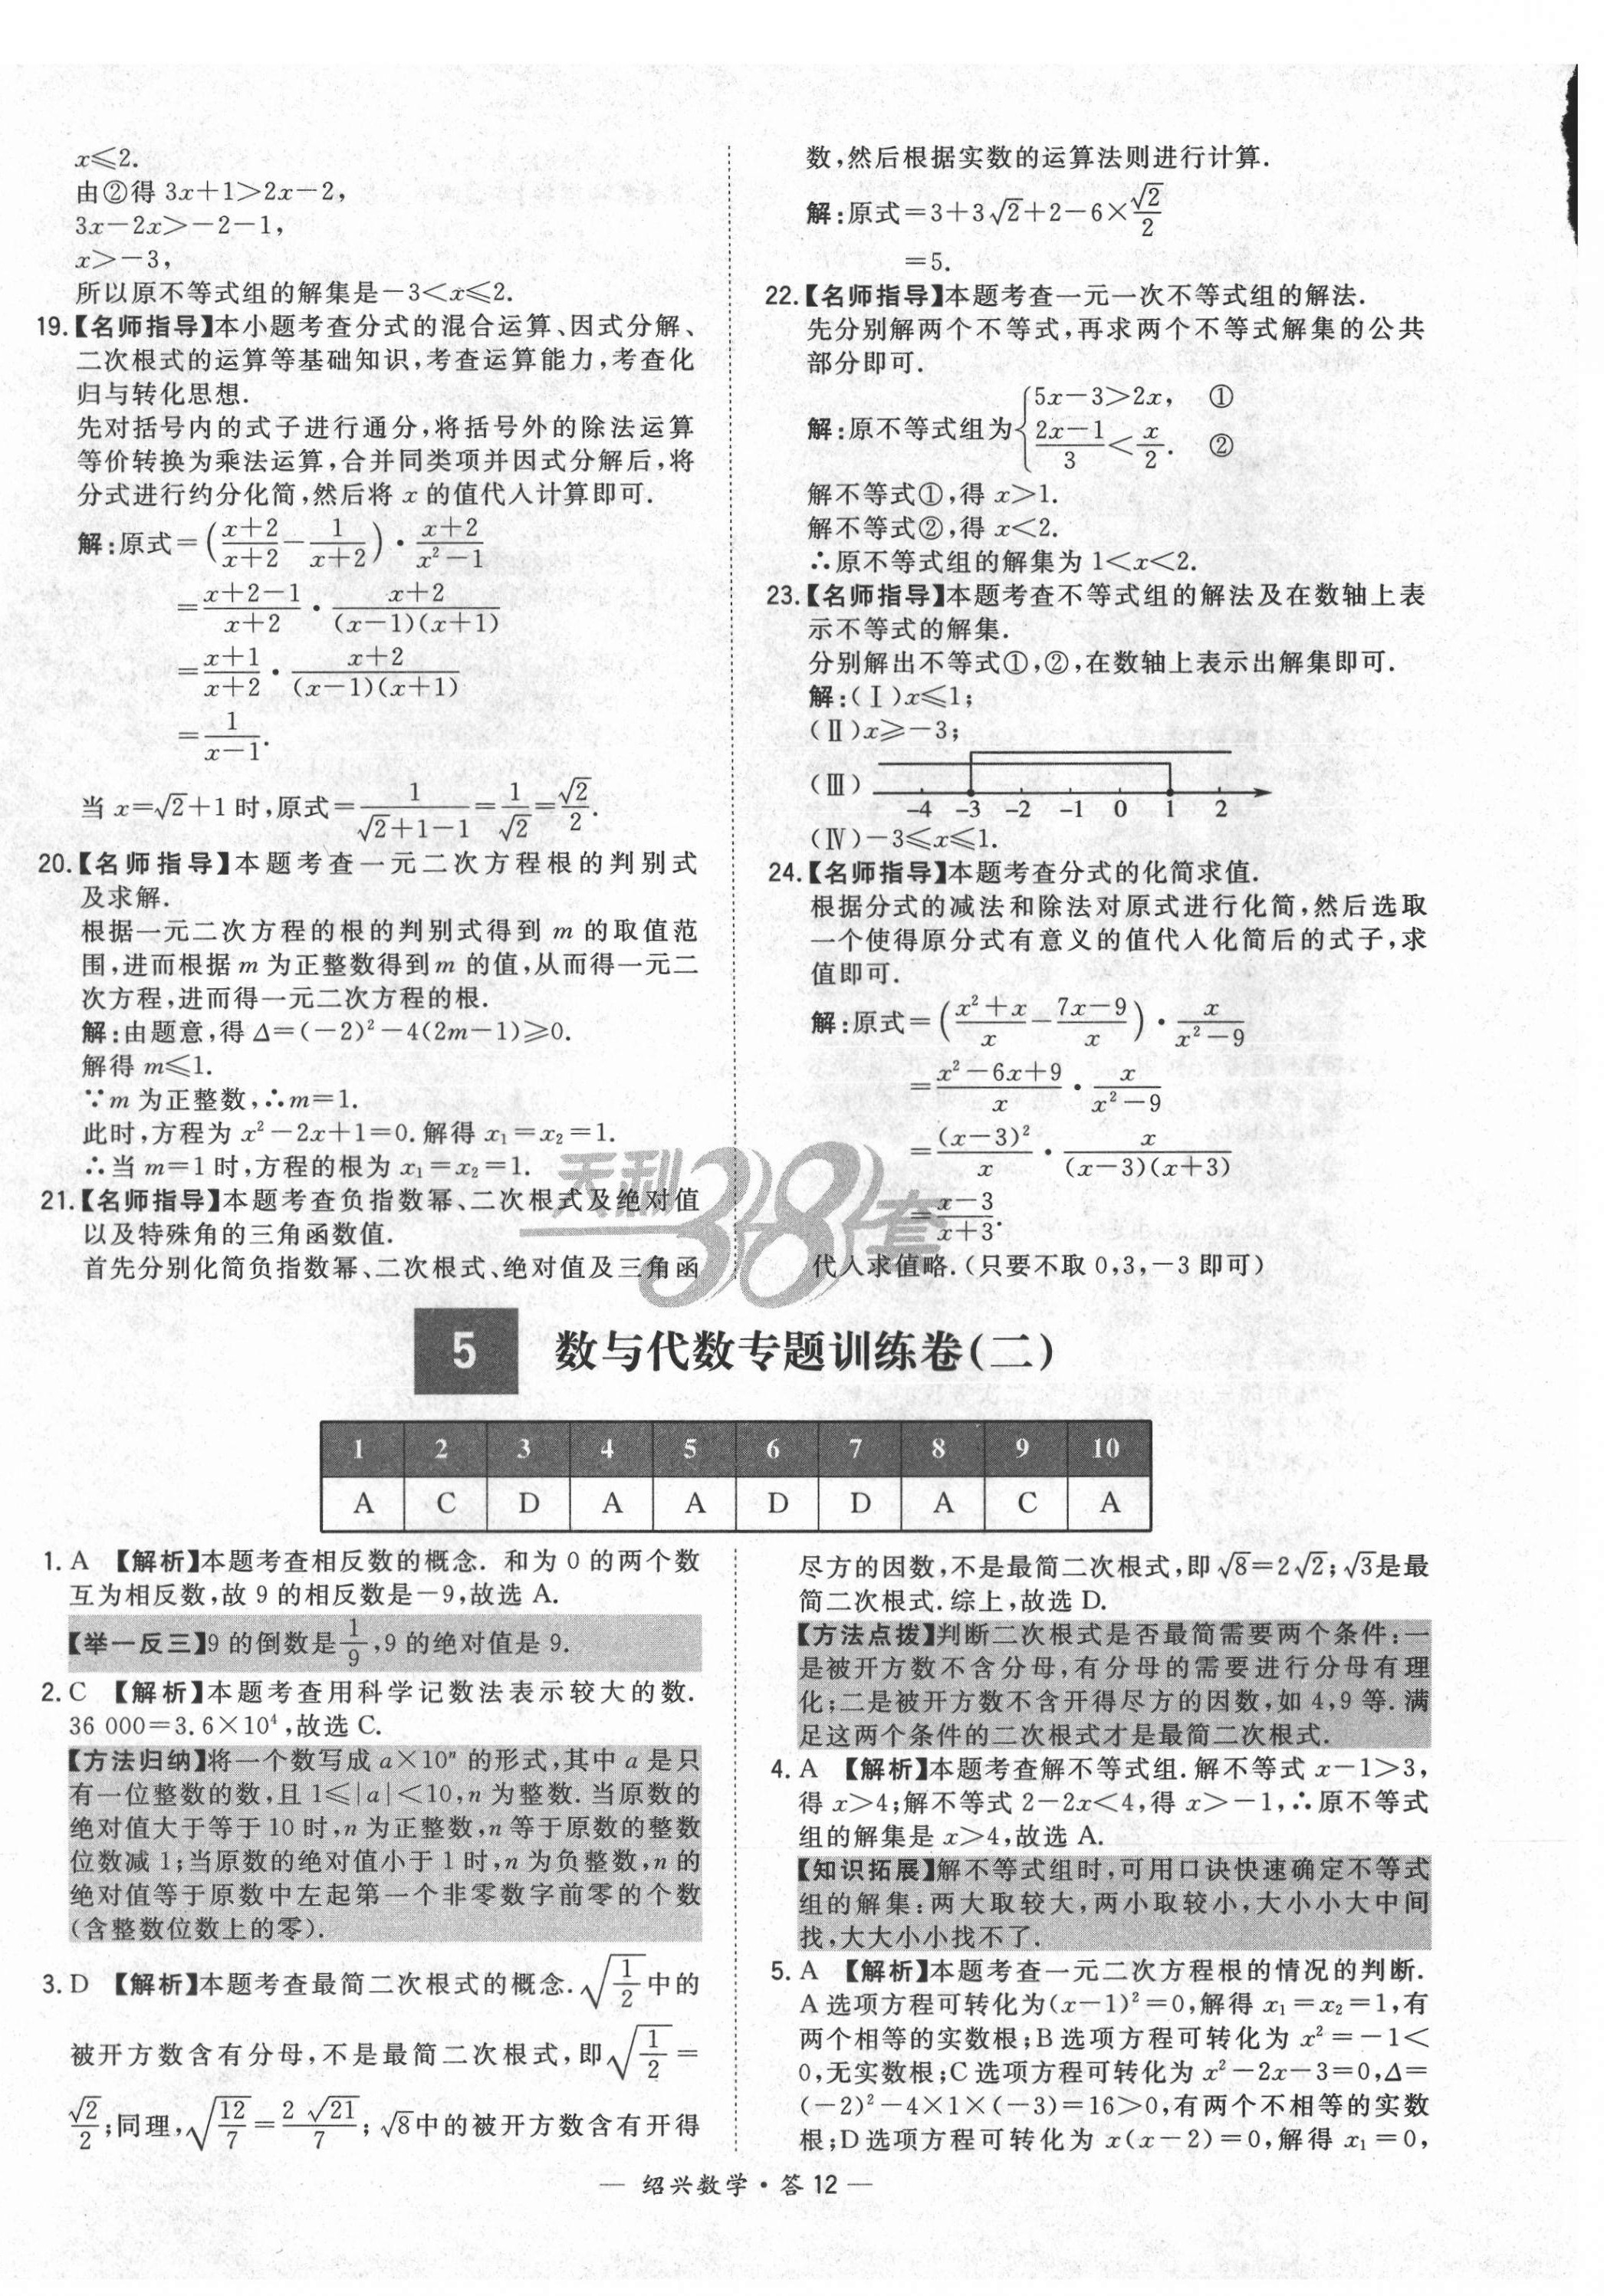 x≤2.
由②得 3x+1>2x-2,
3x-2x>-2-1,
x>-3,
所以原不等式组的解集是-3<x≤2.
19.【名师指导】本小题考查分式的混合运算、因式分解、
二次根式的运算等基础知识,考查运算能力,考查化
归与转化思想.
先对括号内的式子进行通分,将括号外的除法运算
等价转换为乘法运算,合并同类项并因式分解后,将
分式进行约分化简,然后将 x 的值代入计算即可.
解:原式=((x+2)/(x+2)-1/(x+2))·(x+2)/(x²-1)
=(x+2-1)/(x+2)·(x+2)/((x-1)(x+1))
=(x+1)/(x+2)·(x+2)/((x-1)(x+1))
=1/(x-1).
当 x=√2+1 时,原式=1/(√2+1-1)=1/√2=√2/2.
20.【名师指导】本题考查一元二次方程根的判别式
及求解.
根据一元二次方程的根的判别式得到 m 的取值范
围,进而根据 m 为正整数得到 m 的值,从而得一元二
次方程,进而得一元二次方程的根.
解:由题意,得 Δ=(-2)²-4(2m-1)≥0.
解得 m≤1.
∵m 为正整数,∴m=1.
此时,方程为 x²-2x+1=0.解得 x₁=x₂=1.
∴当 m=1 时,方程的根为 x₁=x₂=1.
21.【名师指导】本题考查负指数幂、二次根式及绝对值
以及特殊角的三角函数值.
首先分别化简负指数幂、二次根式、绝对值及三角函
数,然后根据实数的运算法则进行计算.
解:原式=3+3√2+2-6×√2/2
=5.
22.【名师指导】本题考查一元一次不等式组的解法.
先分别解两个不等式,再求两个不等式解集的公共
部分即可.
解:原不等式组为{5x-3>2x, ①
(2x-1)/3<x/2. ②
解不等式①,得 x>1.
解不等式②,得 x<2.
∴原不等式组的解集为 1<x<2.
23.【名师指导】本题考查不等式组的解法及在数轴上表
示不等式的解集.
分别解出不等式①,②,在数轴上表示出解集即可.
解:(Ⅰ)x≤1;
(Ⅱ)x≥-3;
(Ⅲ)
-4 -3 -2 -1 0 1 2
(Ⅳ)-3≤x≤1.
24.【名师指导】本题考查分式的化简求值.
根据分式的减法和除法对原式进行化简,然后选取
一个使得原分式有意义的值代入化简后的式子,求
值即可.
解:原式=((x²+x)/x-(7x-9)/x)·x/(x²-9)
=(x²-6x+9)/x·x/(x²-9)
=(x-3)²/x·x/((x-3)(x+3))
=(x-3)/(x+3).
代入求值略.(只要不取 0,3,-3 即可)
天利38套
5 数与代数专题训练卷(二)
1 2 3 4 5 6 7 8 9 10
A C D A A D D A C A
1. A 【解析】本题考查相反数的概念. 和为 0 的两个数
互为相反数,故 9 的相反数是-9,故选 A.
【举一反三】9 的倒数是1/9,9 的绝对值是 9.
2. C 【解析】本题考查用科学记数法表示较大的数.
36 000=3.6×10⁴,故选 C.
【方法归纳】将一个数写成 a×10ⁿ 的形式,其中 a 是只
有一位整数的数,且 1≤|a|<10,n 为整数. 当原数的
绝对值大于等于 10 时,n 为正整数,n 等于原数的整数
位数减 1;当原数的绝对值小于 1 时,n 为负整数,n 的
绝对值等于原数中左起第一个非零数字前零的个数
(含整数位数上的零).
3. D 【解析】本题考查最简二次根式的概念.√(1/2)中的
被开方数含有分母,不是最简二次根式,即√(1/2)=
√2/2;同理,√(12/7)=2√21/7; √8中的被开方数含有开得
尽方的因数,不是最简二次根式,即√8=2√2;√3是最
简二次根式.综上,故选 D.
【方法点拨】判断二次根式是否最简需要两个条件:一
是被开方数不含分母,有分母的需要进行分母有理
化;二是被开方数不含开得尽方的因数,如 4,9 等.满
足这两个条件的二次根式才是最简二次根式.
4. A 【解析】本题考查解不等式组.解不等式 x-1>3,
得 x>4;解不等式 2-2x<4,得 x>-1,∴原不等式
组的解集是 x>4,故选 A.
【知识拓展】解不等式组时,可用口诀快速确定不等式
组的解集:两大取较大,两小取较小,大小小大中间
找,大大小小找不了.
5. A 【解析】本题考查一元二次方程根的情况的判断.
A 选项方程可转化为(x-1)²=0,解得 x₁=x₂=1,有
两个相等的实数根;B 选项方程可转化为 x²=-1<
0,无实数根;C 选项方程可转化为 x²-2x-3=0,Δ=
(-2)²-4×1×(-3)=16>0,有两个不相等的实数
根;D 选项方程可转化为 x(x-2)=0,解得 x₁=0,
— 绍兴数学·答 12 —